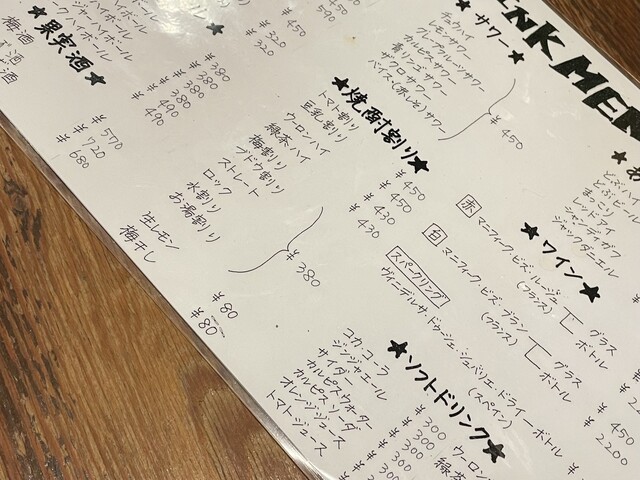 DRINK MEN
★サワー★
チュウハイ
レモンサワー
グレープフルーツサワー
カルピスサワー
青リンゴサワー
ザクロサワー
バイス(赤しそ)サワー
¥450
★焼酎割り★
トマト割り ¥450
豆乳割り ¥450
ウーロンハイ ¥430
緑茶ハイ ¥430
梅割り
ブドウ割り
ストレート
ロック
水割り
お湯割り
¥380
生レモン ¥80
梅干し ¥80
果実酒★
梅酒
¥570
¥720
¥680
¥450
¥590
¥320
¥320
¥380
¥380
380
490
490
★ワイン★
赤 マニフィク.ビズ.ルージュ
(フランス)
グラス
ボトル
白 マニフィク.ビズ.ブラン
(フランス)
グラス
ボトル
スパークリング
ヴィニデルサ.ドゥーシェ.シュバリエ.ドライーボトル
(スペイン)
450
2200
どぶハイ
どぶビール
まっこり
レッドアイ
シャンディガフ
ジャックダニエル
★ソフトドリンク★
コカ・コーラ ¥300
ジンジャエール ¥300
サイダー ¥300
カルピスウォーター
カルピスソーダ
オレンジジュース
トマトジュース
ウーロン
緑茶